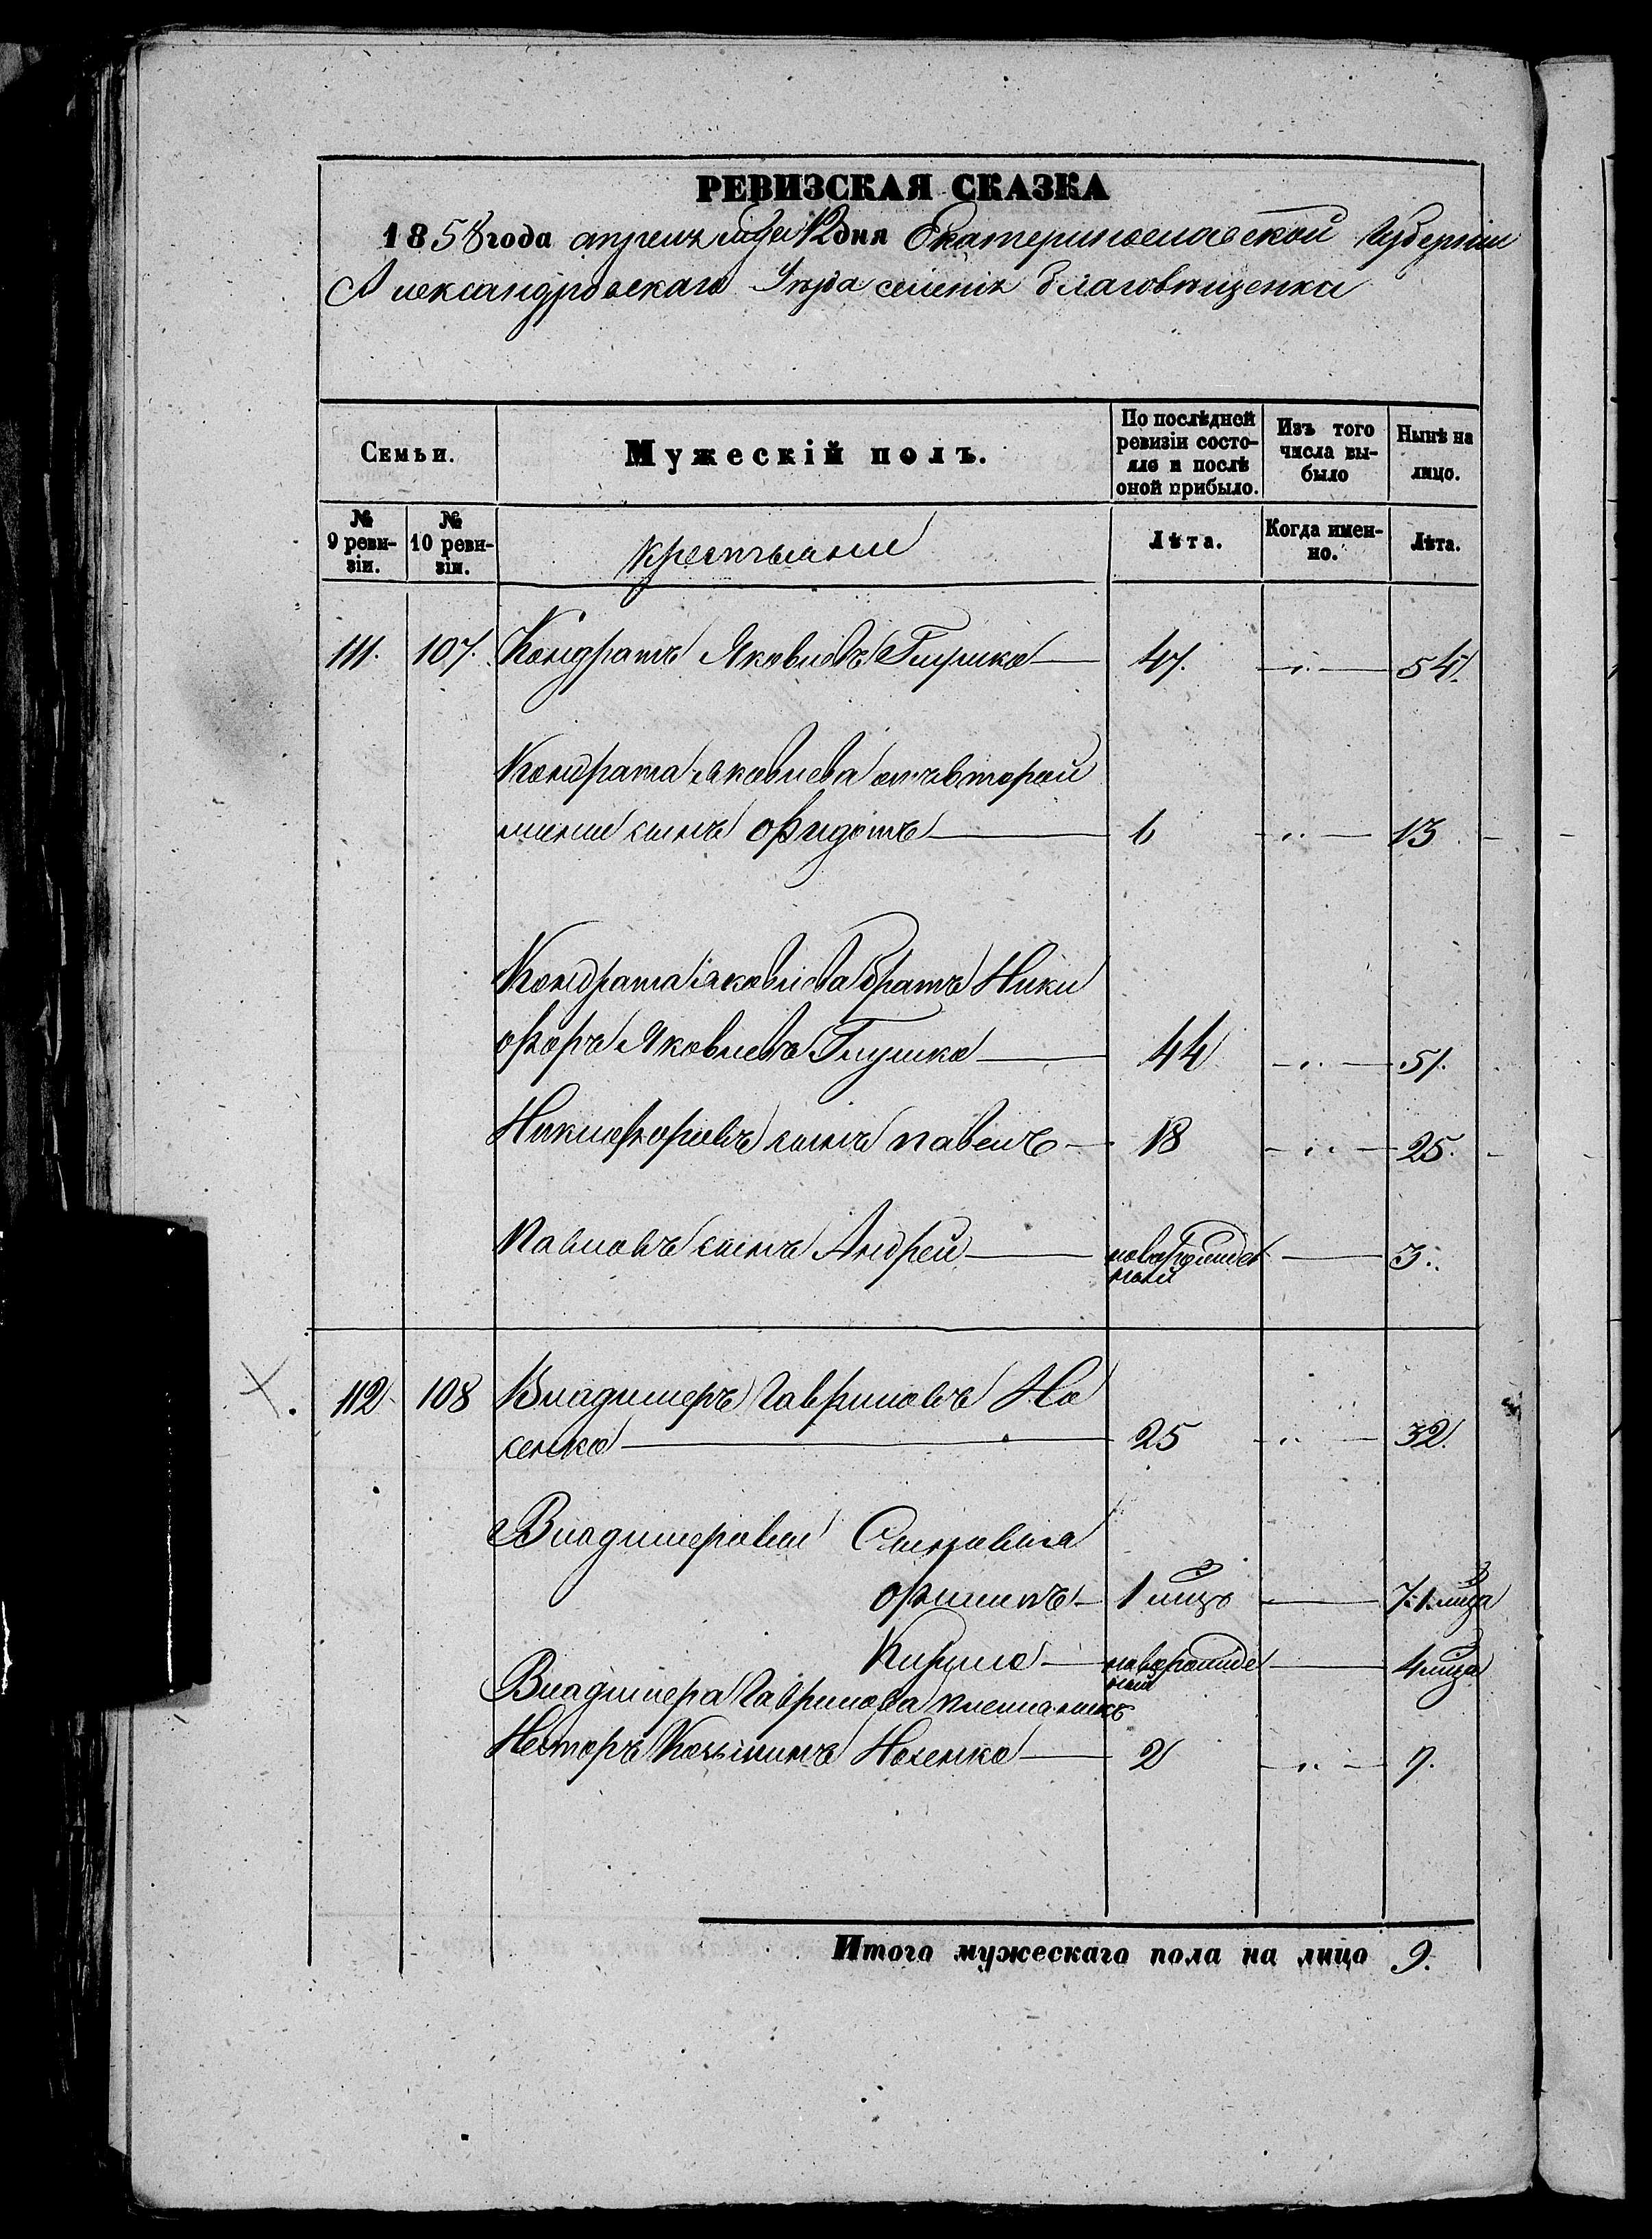 РЕВИЗСКАЯ СКАЗКА
1858 года апреля 12 дня Екатеринославской Губерніи
Александровскаго Уезда селенія Благовѣщенки
Семьи.
Мужескій полъ.
По послѣдней ревизіи состояло и послѣ оной прибыло.
Изъ того числа выбыло
Нынѣ на лицо.
№ 9 ревизіи.
№ 10 ревизіи.
крестьяне
Лѣта.
Когда именно.
Лѣта.
111. 107. Кондратъ Яковлевъ Глушко 47. 54.
Кондрата Яковлева отъ второй
жены сынъ Федотъ 6 13
Кондрата Яковлева братъ Ники
форъ Яковлевъ Глушко 44 51.
Никифоровъ сынъ Павелъ 18 25.
Павловъ сынъ Андрей новорожден 3.
ный
112 108 Владимеръ Гавриловъ Но
сенко 25 32.
Владимеровы Сыновья
Филипъ 1 7.
Кирило новорожде 4
ный
Владимера Гаврилова племяникъ
Несторъ Козьминъ Носенко 2 9.
Итого мужескаго пола на лицо 9.